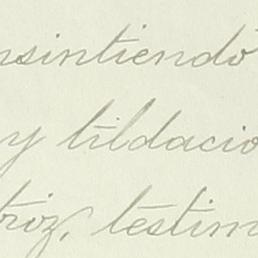 nsintiendó
y tildacio
triz, testim